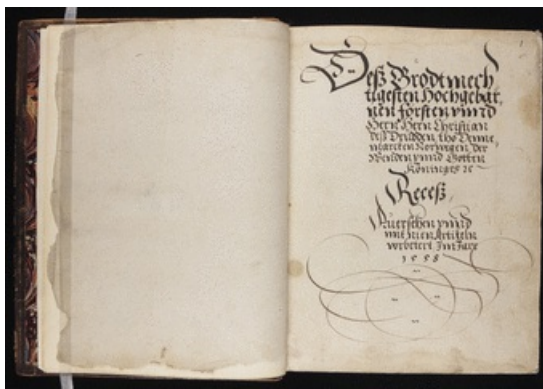 1
Deß Grodtmech
tigesten Hochgebar,
nen försten vnnd
Hern Hern Christian
deß Drüdden tho Denne,
marcken Norwegen der
Wenden vnnd Gotten
Köninges ꝛc
Receß,
vnnd
Artikeln
Im Jare
1558